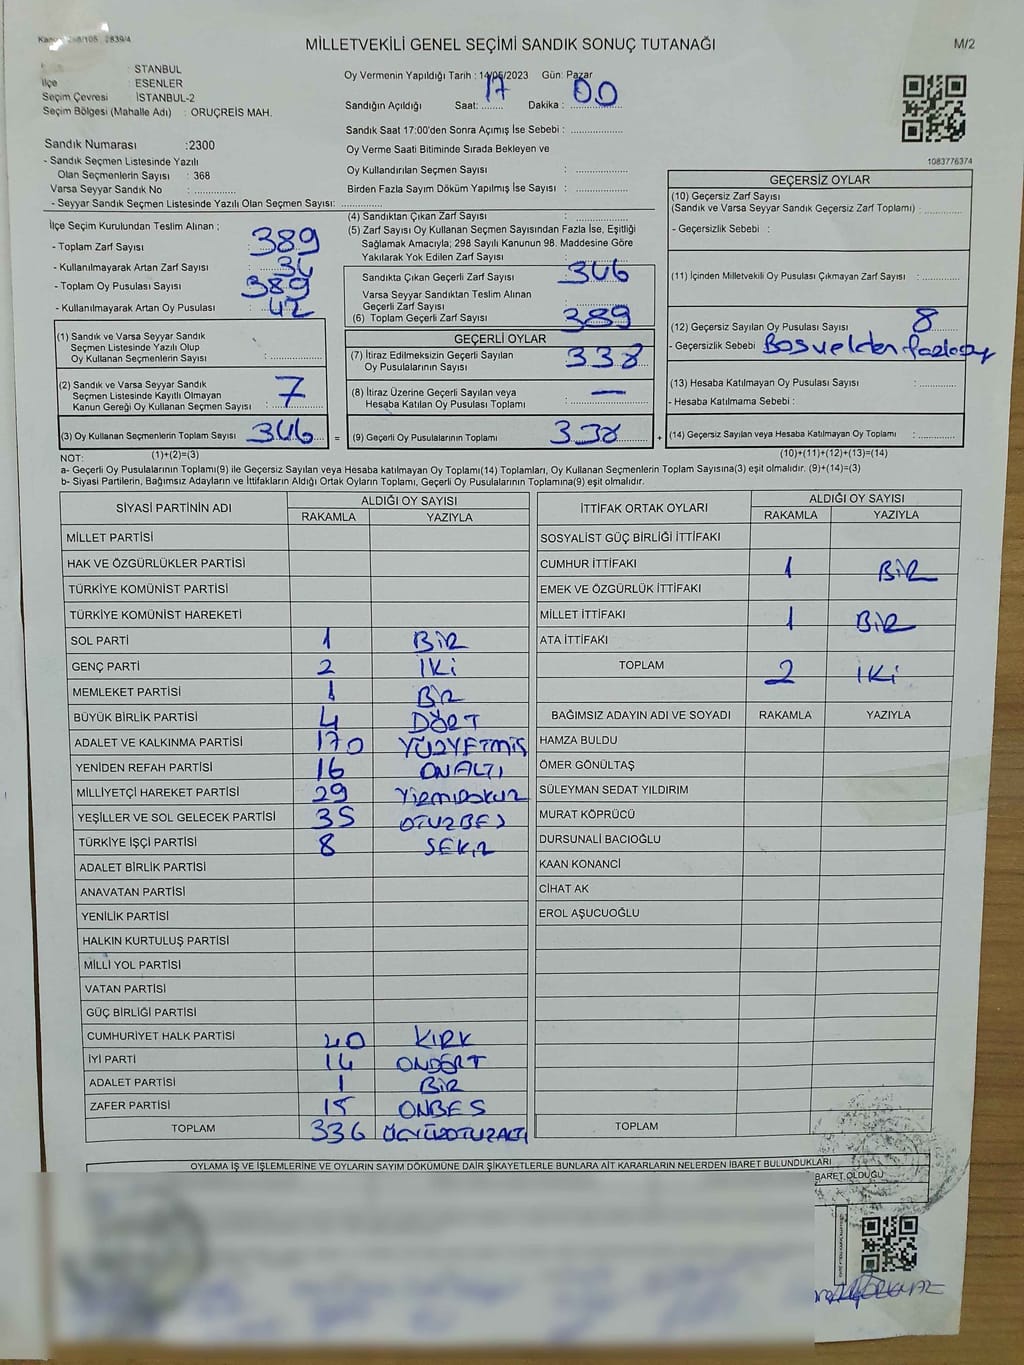 2839/4
MİLLETVEKİLİ GENEL SEÇİMİ SANDIK SONUÇ TUTANAĞI
M/2
: İSTANBUL
İlçe : ESENLER
Seçim Çevresi : İSTANBUL-2
Seçim Bölgesi (Mahalle Adı) : ORUÇREİS MAH.
Sandık Numarası :2300
- Sandık Seçmen Listesinde Yazılı
Olan Seçmenlerin Sayısı : 368
Varsa Seyyar Sandık No : ..............
- Seyyar Sandık Seçmen Listesinde Yazılı Olan Seçmen Sayısı: ..............
Oy Vermenin Yapıldığı Tarih : 14/05/2023 Gün: Pazar
Sandığın Açıldığı Saat: 17 Dakika : 00
Sandık Saat 17:00'den Sonra Açımış İse Sebebi : ..............
Oy Verme Saati Bitiminde Sırada Bekleyen ve
Oy Kullandırılan Seçmen Sayısı : ..............
Birden Fazla Sayım Döküm Yapılmış İse Sayısı : ..............
1083776374
İlçe Seçim Kurulundan Teslim Alınan ;
- Toplam Zarf Sayısı : 389
- Kullanılmayarak Artan Zarf Sayısı
- Toplam Oy Pusulası Sayısı : 389
- Kullanılmayarak Artan Oy Pusulası : 42
(1) Sandık ve Varsa Seyyar Sandık
Seçmen Listesinde Yazılı Olup
Oy Kullanan Seçmenlerin Sayısı : ..............
(2) Sandık ve Varsa Seyyar Sandık
Seçmen Listesinde Kayıtlı Olmayan
Kanun Gereği Oy Kullanan Seçmen Sayısı : 7
(3) Oy Kullanan Seçmenlerin Toplam Sayısı : 346
(4) Sandıktan Çıkan Zarf Sayısı : ..............
(5) Zarf Sayısı Oy Kullanan Seçmen Sayısından Fazla İse, Eşitliği
Sağlamak Amacıyla; 298 Sayılı Kanunun 98. Maddesine Göre
Yakılarak Yok Edilen Zarf Sayısı : ..............
Sandıkta Çıkan Geçerli Zarf Sayısı : 346
Varsa Seyyar Sandıktan Teslim Alınan
Geçerli Zarf Sayısı : ..............
(6) Toplam Geçerli Zarf Sayısı : 389
GEÇERLİ OYLAR
(7) İtiraz Edilmeksizin Geçerli Sayılan
Oy Pusulalarının Sayısı : 338
(8) İtiraz Üzerine Geçerli Sayılan veya
Hesaba Katılan Oy Pusulası Toplamı : —
= (9) Geçerli Oy Pusulalarının Toplamı : 338
GEÇERSİZ OYLAR
(10) Geçersiz Zarf Sayısı
(Sandık ve Varsa Seyyar Sandık Geçersiz Zarf Toplamı) : ..............
- Geçersizlik Sebebi :
(11) İçinden Milletvekili Oy Pusulası Çıkmayan Zarf Sayısı : ..............
(12) Geçersiz Sayılan Oy Pusulası Sayısı : 8
- Geçersizlik Sebebi
(13) Hesaba Katılmayan Oy Pusulası Sayısı : ..............
- Hesaba Katılmama Sebebi :
+ (14) Geçersiz Sayılan veya Hesaba Katılmayan Oy Toplamı : ..............
NOT: (1)+(2)=(3)
(10)+(11)+(12)+(13)=(14)
a- Geçerli Oy Pusulalarının Toplamı(9) ile Geçersiz Sayılan veya Hesaba katılmayan Oy Toplamı(14) Toplamları, Oy Kullanan Seçmenlerin Toplam Sayısına(3) eşit olmalıdır. (9)+(14)=(3)
b- Siyasi Partilerin, Bağımsız Adayların ve İttifakların Aldığı Ortak Oyların Toplamı, Geçerli Oy Pusulalarının Toplamına(9) eşit olmalıdır.
SİYASİ PARTİNİN ADI ALDIĞI OY SAYISI
RAKAMLA YAZIYLA
MİLLET PARTİSİ
HAK VE ÖZGÜRLÜKLER PARTİSİ
TÜRKİYE KOMÜNİST PARTİSİ
TÜRKİYE KOMÜNİST HAREKETİ
SOL PARTİ 1 BİR
GENÇ PARTİ 2 İKİ
MEMLEKET PARTİSİ 1 BİR
BÜYÜK BİRLİK PARTİSİ 4 DÖRT
ADALET VE KALKINMA PARTİSİ 170 YÜZYETMİŞ
YENİDEN REFAH PARTİSİ 16 ONALTI
MİLLİYETÇİ HAREKET PARTİSİ 29 YİRMİDOKUZ
YEŞİLLER VE SOL GELECEK PARTİSİ 35 OTUZBEŞ
TÜRKİYE İŞÇİ PARTİSİ 8 SEKİZ
ADALET BİRLİK PARTİSİ
ANAVATAN PARTİSİ
YENİLİK PARTİSİ
HALKIN KURTULUŞ PARTİSİ
MİLLİ YOL PARTİSİ
VATAN PARTİSİ
GÜÇ BİRLİĞİ PARTİSİ
CUMHURİYET HALK PARTİSİ 40 KIRK
İYİ PARTİ 14 ONDÖRT
ADALET PARTİSİ 1 BİR
ZAFER PARTİSİ 15 ONBEŞ
TOPLAM 336 ÜÇYÜZOTUZALTI
İTTİFAK ORTAK OYLARI ALDIĞI OY SAYISI
RAKAMLA YAZIYLA
SOSYALİST GÜÇ BİRLİĞİ İTTİFAKI
CUMHUR İTTİFAKI 1 BİR
EMEK VE ÖZGÜRLÜK İTTİFAKI
MİLLET İTTİFAKI 1 BİR
ATA İTTİFAKI
TOPLAM 2 İKİ
BAĞIMSIZ ADAYIN ADI VE SOYADI RAKAMLA YAZIYLA
HAMZA BULDU
ÖMER GÖNÜLTAŞ
SÜLEYMAN SEDAT YILDIRIM
MURAT KÖPRÜCÜ
DURSUNALİ BACIOĞLU
KAAN KONANCİ
CİHAT AK
EROL AŞUCUOĞLU
TOPLAM
OYLAMA İŞ VE İŞLEMLERİNE VE OYLARIN SAYIM DÖKÜMÜNE DAİR ŞİKAYETLERLE BUNLARA AİT KARARLARIN NELERDEN İBARET BULUNDUKLARI
BARET OLDUĞU